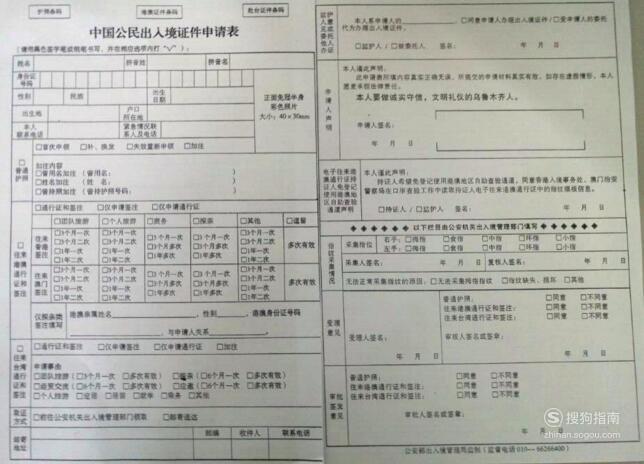 护照条码
港澳证件条码
赴台证件条码
中国公民出入境证件申请表
(请用黑色签字笔或钢笔书写，并在相应选项内打"√")：
姓名
拼音姓
拼音名
身份证号码
性别
民族
出生日期
正面免冠半身彩色照片
大小：40×30mm
出生地
户口所在地
本人联系电话
紧急情况联系人及电话
□首次申领 □补、换发 □失效重新申领 □加注
□普通护照
加注内容
□曾用名加注（曾用名： ）
□姓名加注（姓名： ）
□曾持照加注（曾持护照号码： ）
□往来港澳通行证和签注
□通行证和签注 □仅申请签注 □仅申请通行证
□团队旅游
□个人旅游
□商务
□探亲
□其他
□逗留
往来香港签注
□3个月一次
□3个月二次
□1年一次
□1年二次
□3个月一次
□3个月多次
□1年一次
□1年多次
多次有效
往来澳门签注
多次有效
仅探亲类签注填写
港澳亲属姓名 ，性别 ，港澳身份证号码
，与申请人关系 。
□往来台湾通行证和签注
□通行证和签注 □仅申请签注 □仅申请通行证 □加注
申请事由
□团队旅游（□3个月一次 □多次有效）
□探亲（□3个月一次 □多次有效）
□个人旅游 □定居
□乘务 □其他
取证方式
□前往公安机关出入境管理部门领取 □邮寄送达
邮寄地址
邮编
收件人
联系电话
监护人意见或委托他人办证
本人系申请人的 ，□同意申请办理出入境证件/□受申请人的委托代为办理出入境证件。
□监护人/□被委托人 签名： 年 月 日
申请人声明
本人谨此声明：
此申请表所填内容真实正确无误，所提交的申请材料真实有效。如存在虚假情形，本人愿意承担法律责任。
本人要做诚实守信，文明礼仪的乌鲁木齐人。
申请人签名：
年 月 日
电子往来港澳通行证持证人免登记使用港澳地区自助查验通道声明
本人谨此声明：
持证人希望免登记使用港澳地区自助查验通道，同意香港入境事务处、澳门治安警察局在口岸查验工作中读取持证人电子往来港澳通行证中的指纹模板信息。
□持证人/□监护人 签名： 年 月 日
◆◆◆◆◆ 以下栏目由公安机关出入境管理部门填写 ◆◆◆◆◆
指纹采集情况
采集指位
右手：□拇指 □食指 □中指 □环指 □小指
左手：□拇指 □食指 □中指 □环指 □小指
采集人签名： 复核人签名： 年 月 日
无法正常采集指纹的原因：□无法采集拇指指纹 □指纹缺失、损坏 □其他
受理意见
受理人签名：
年 月 日
普通护照： □同意 □不同意
往来港澳通行证和签注： □同意 □不同意
往来台湾通行证和签注： □同意 □不同意
审核人签名或签章：
年 月 日
审批签发意见
普通护照： □同意 □不同意
往来港澳通行证和签注： □同意 □不同意
往来台湾通行证和签注： □同意 □不同意
审批人签名或签章：
年 月 日
公安部出入境管理局监制（监督电话010—66266400）
搜狗指南
zhinan.sogou.com